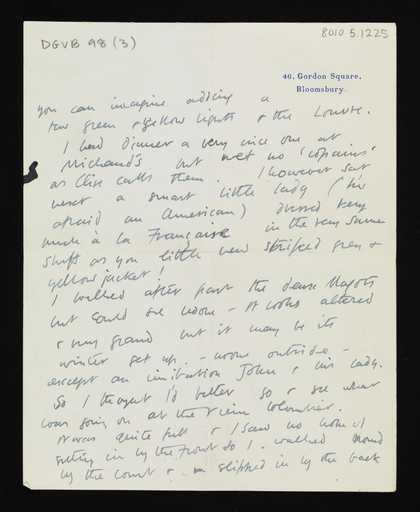 DGVB 98 (3)
8010.5.1225
46, Gordon Square,
Bloomsbury.
you can imagine adding a
few green & yellow lights & the Louvre.
I had dinner a very nice one at
Michaud's but met no 'copains'
as Clive calls them. I however sat
next a smart little lady (I'm
afraid an American) dressed very
much à la Française in the very same
stuff as your little new striped grey &
yellow jacket!
I walked after past the deux Magots
but could see no one - It looks altered
& very grand but it may be its
winter get up. - no one outside -
except an imitation John & his lady.
So I thought I'd better go & see what
was going on at the Vieux Colombier.
It was quite full & I saw no hope of
getting in by the front so I walked round
by the court & slipped in by the back